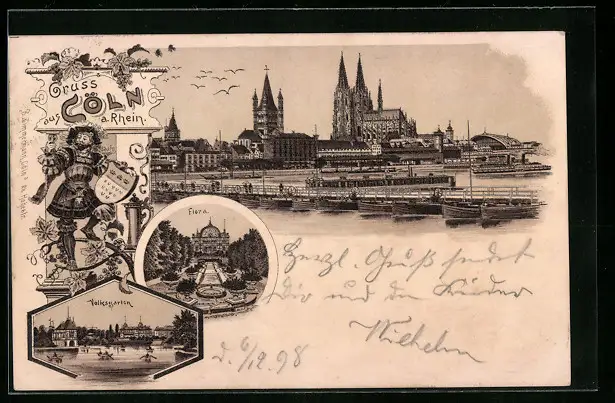 Gruss
aus CÖLN
a. Rhein.
Flora.
Volksgarten
Herzl. Gruß sendet
Dir und den Kinder
Wilhelm
d. 6/12. 98